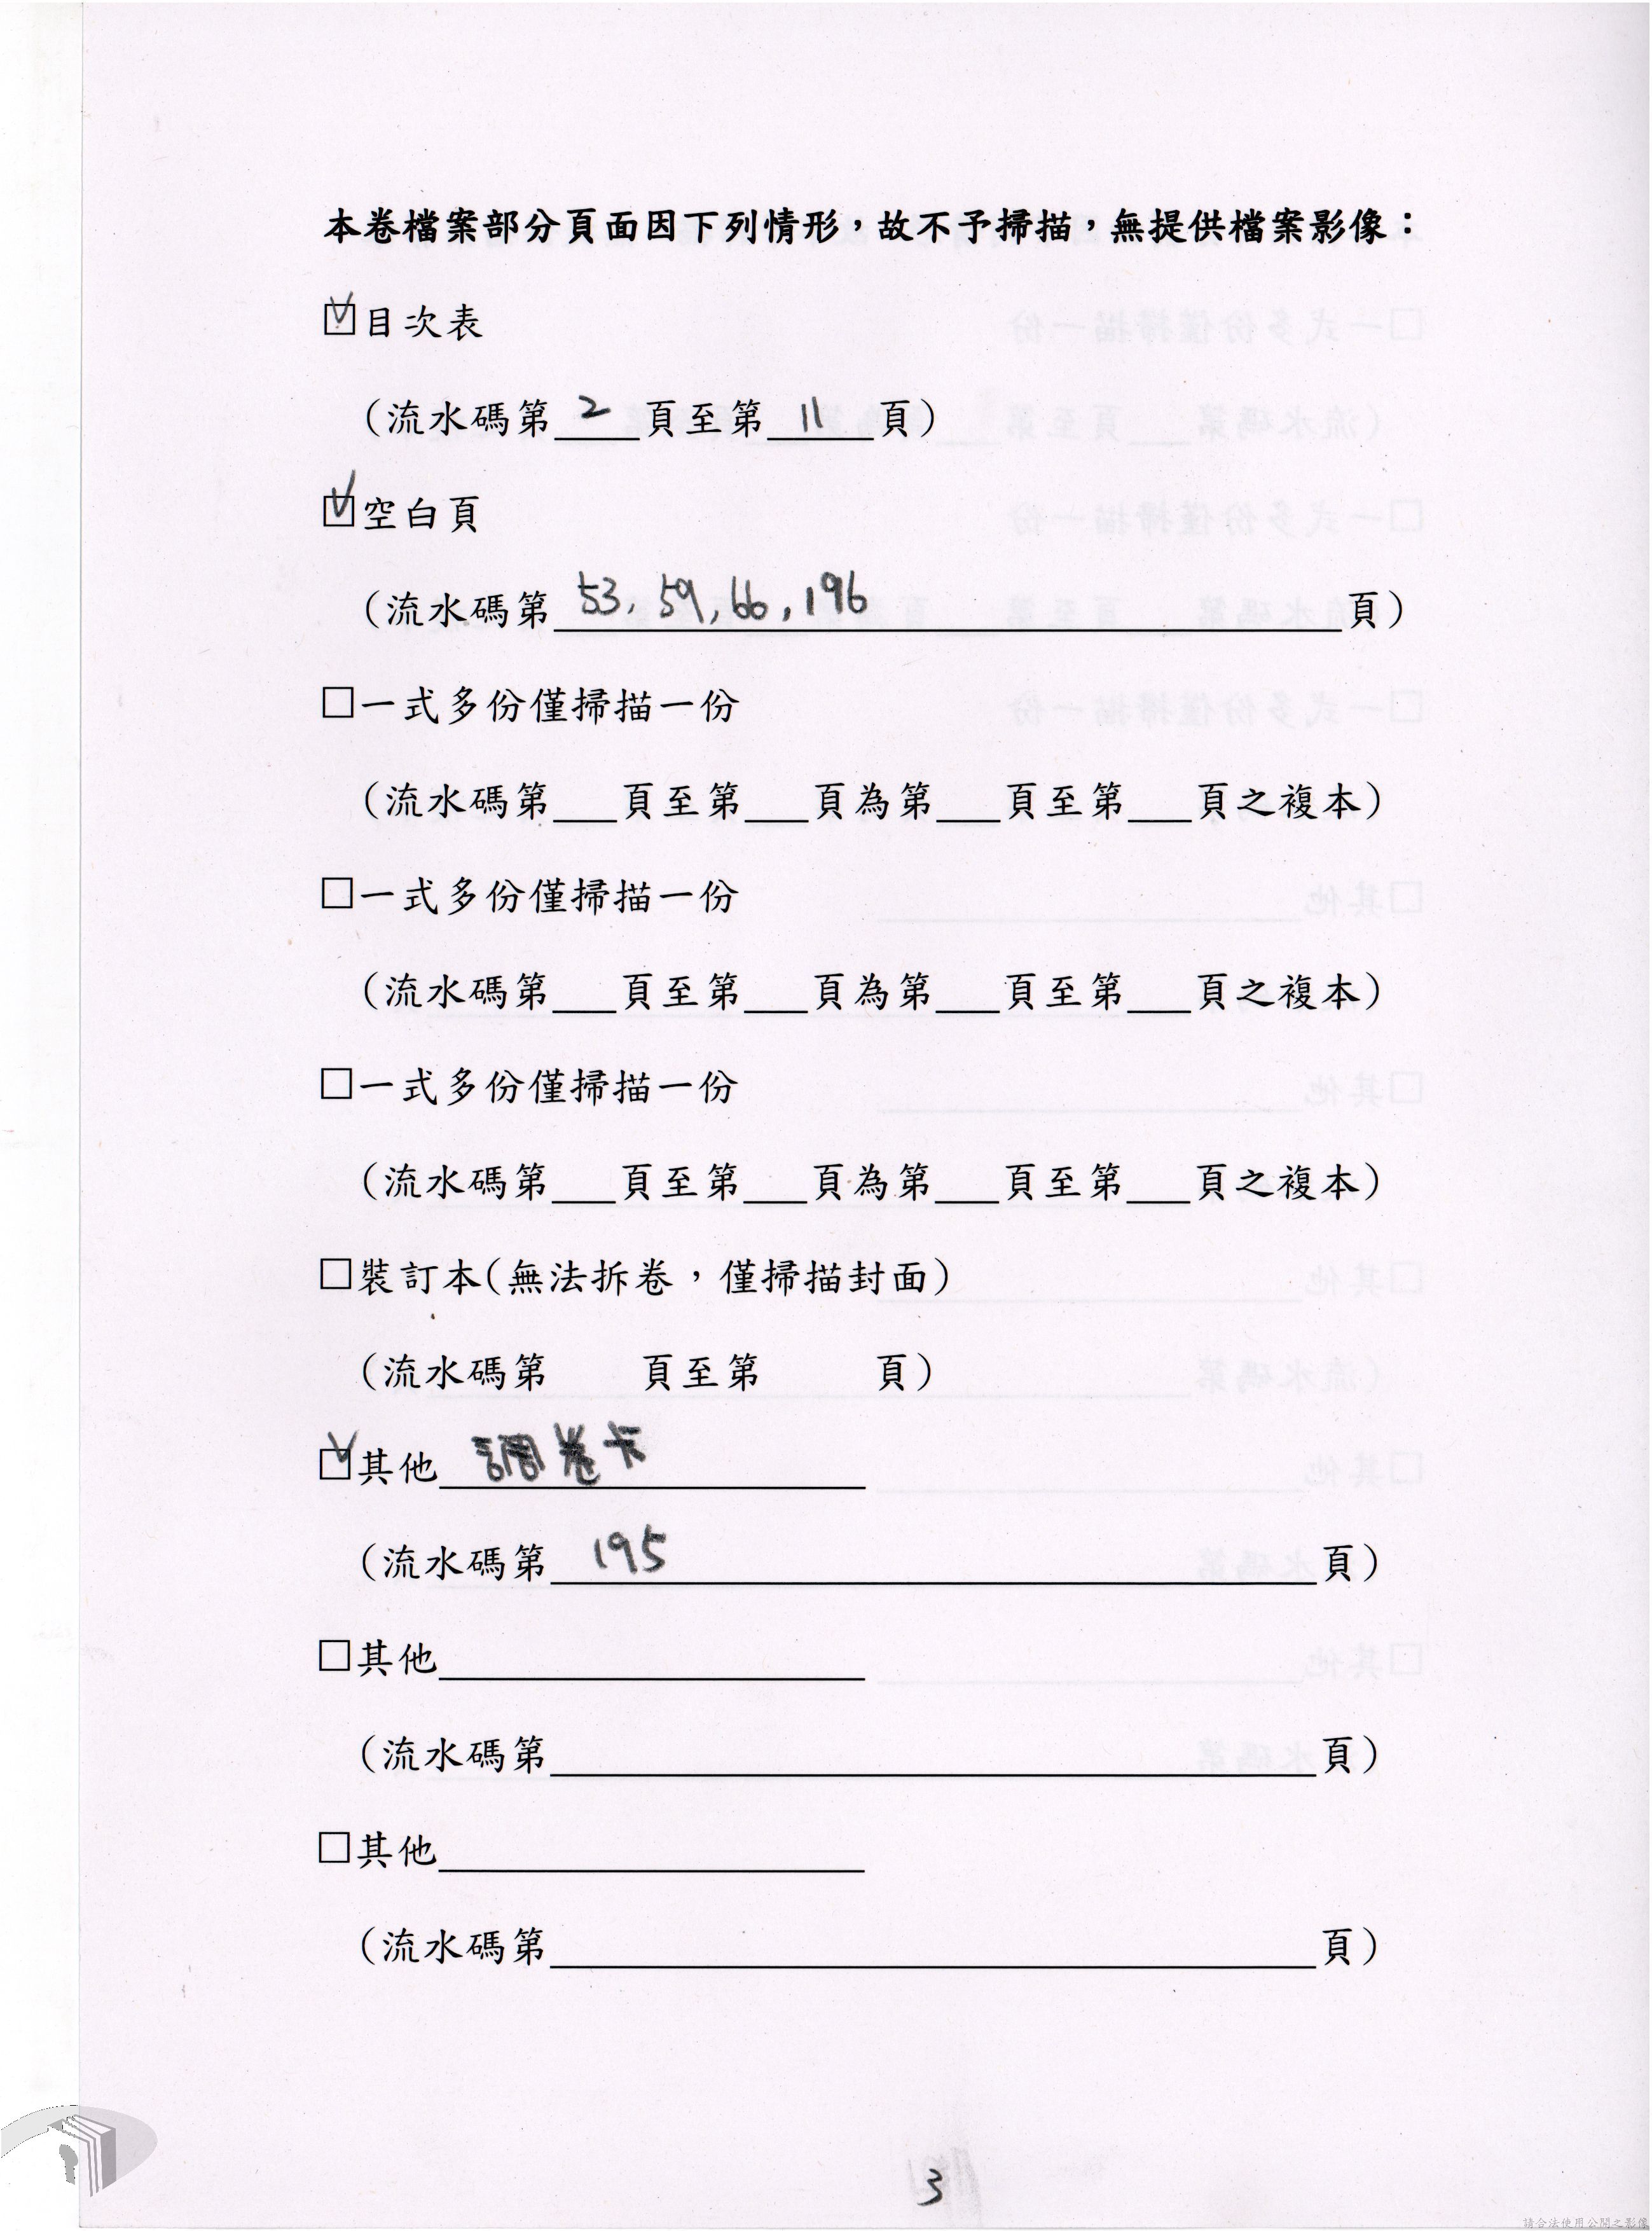 本卷檔案部分頁面因下列情形，故不予掃描，無提供檔案影像：
☑目次表
（流水碼第 2 頁至第 11 頁）
☑空白頁
（流水碼第 53, 59, 66, 196 頁）
□一式多份僅掃描一份
（流水碼第___頁至第___頁為第___頁至第___頁之複本）
□一式多份僅掃描一份
（流水碼第___頁至第___頁為第___頁至第___頁之複本）
□一式多份僅掃描一份
（流水碼第___頁至第___頁為第___頁至第___頁之複本）
□裝訂本(無法拆卷，僅掃描封面)
（流水碼第 頁至第 頁）
☑其他 調卷卡
（流水碼第 195 頁）
□其他____________
（流水碼第____________頁）
□其他____________
（流水碼第____________頁）
3
請合法使用公開之影像